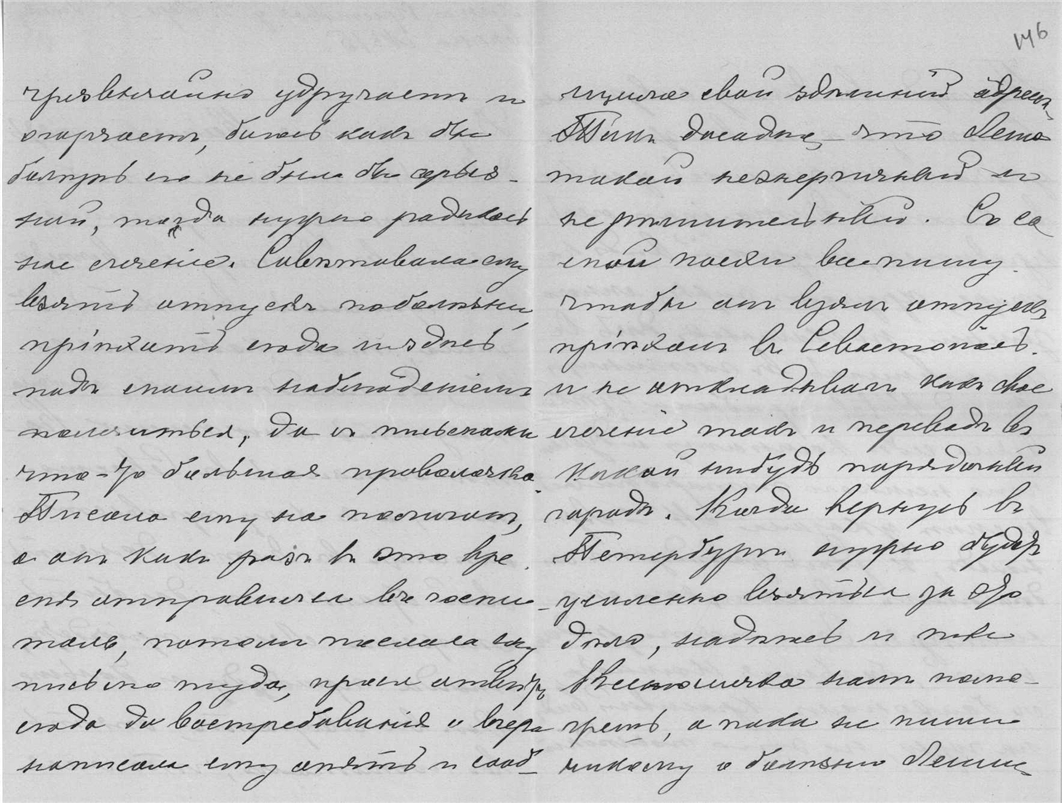 146
чрезвычайно удручаетъ и
огорчаетъ, боюсь какъ бы
болѣзнь его не была бы серьез-
ной, тогда нужно радикаль
ное леченіе. Совѣтовала ему
взять отпускъ по болѣзни,
пріѣхать сюда и здѣсь
подъ моимъ наблюденіемъ
полечиться, да съ письмами
что-то большая проволочка.
Писала ему на полигонъ,
а онъ какъ разъ въ это вре
мя отправился въ госпи
таль, потомъ послала ему
письмо туда, прося отвѣтъ
сюда до востребованія и вчера
написала ему опять и сооб-
щила свой здѣшній адресъ.
Такъ досадно что Леша
такой неэнергичный и
нерѣшительный. Съ са
мой пасхи все пишу
чтобы онъ взялъ отпускъ
пріѣхалъ въ Севастополь
и не откладывалъ какъ свое
леченіе такъ и переводъ въ
какой нибудь порядочный
городъ. Когда вернусь въ
Петербургъ нужно будетъ
усиленно взяться за это
дѣло, надѣюсь и
намъ помо-
жетъ, а пока не пиши
никому о болѣзни Леши